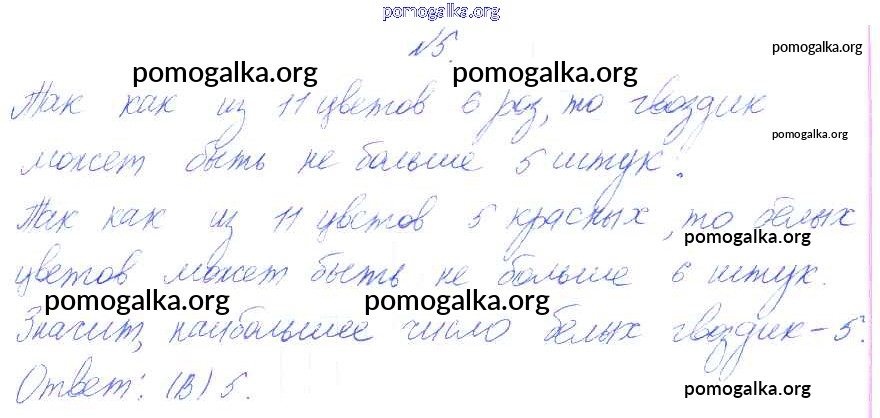 pomogalka.org
№5.
pomogalka.org
pomogalka.org pomogalka.org
Так как из 11 цветов 6 роз, то гвоздик
pomogalka.org
может быть не больше 5 штук.
Так как из 11 цветов 5 красных, то белых
pomogalka.org
цветов может быть не больше 6 штук.
pomogalka.org pomogalka.org
Значит, наибольшее число белых гвоздик – 5.
Ответ: (В) 5.
pomogalka.org